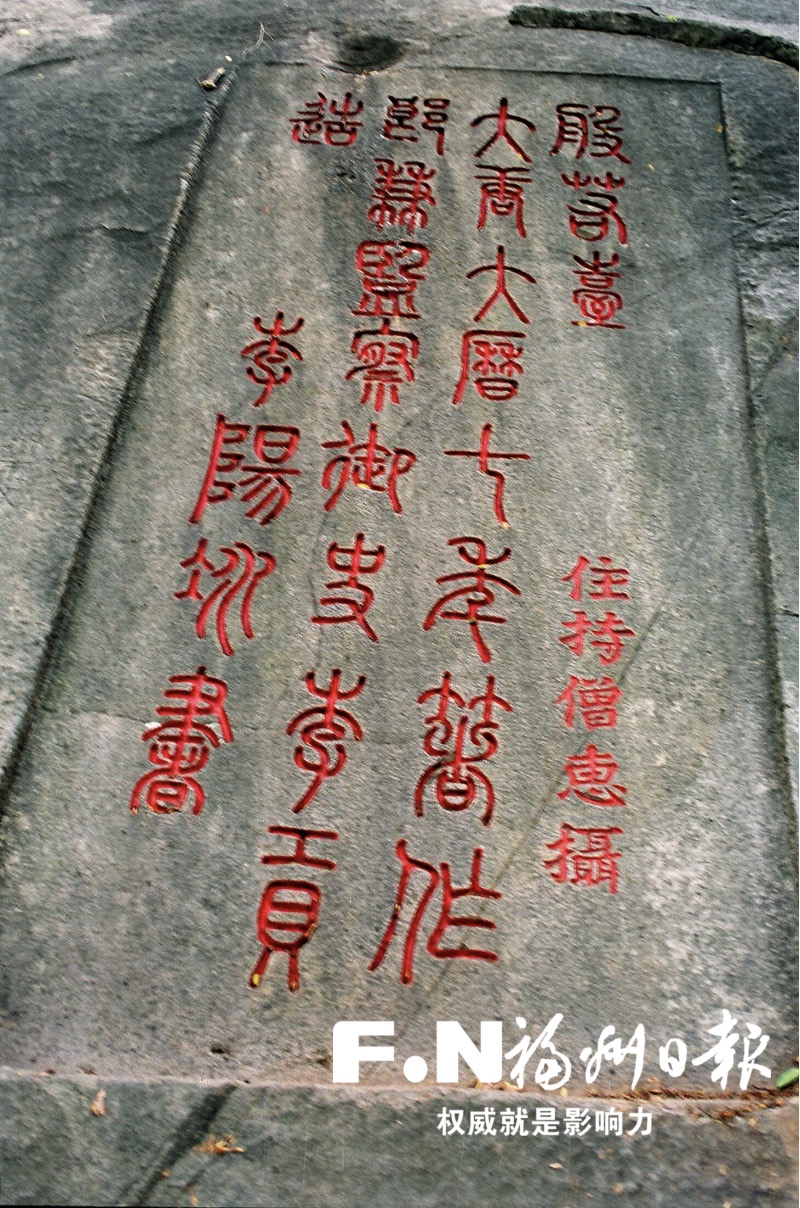 般若臺
住持僧惠攝
大唐大曆七年著作
郎兼監察御史李貢
造
李陽冰書
F.N福州日報
权威就是影响力